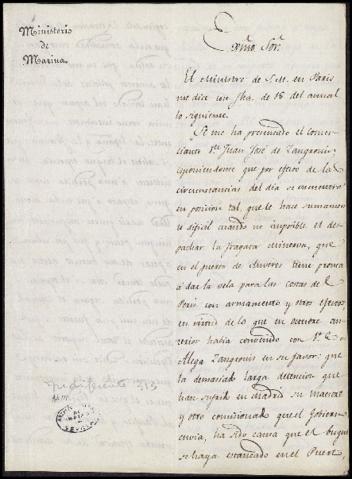 Ministerio
de
Marina.
Exmo Sor.
El Ministro de S.M. en Paris
me dice con fha. de 18 del actual
lo siguiente.
Se me ha presentado el comer-
ciante Dn. Juan José de Zangronis
esponiendome que por efecto de las
circunstancias del dia se encuentra
en posicion tal, que le hace sumamen-
te dificil cuando no imposible el des-
pachar la fragata Minerva, que
en el puerto de Amveres tiene pronta
á dar la vela para las costas de
Perú con armamento y otros efectos
en virtud de lo que en octubre an-
terior habia convenido con
Alega Zangronis en su favor: que
la demasiado larga detencion que
han sufrido en Madrid su
y otro comisionado que el Gobierno
envia, ha sido causa que el buque
se haya estancado en el Puerto